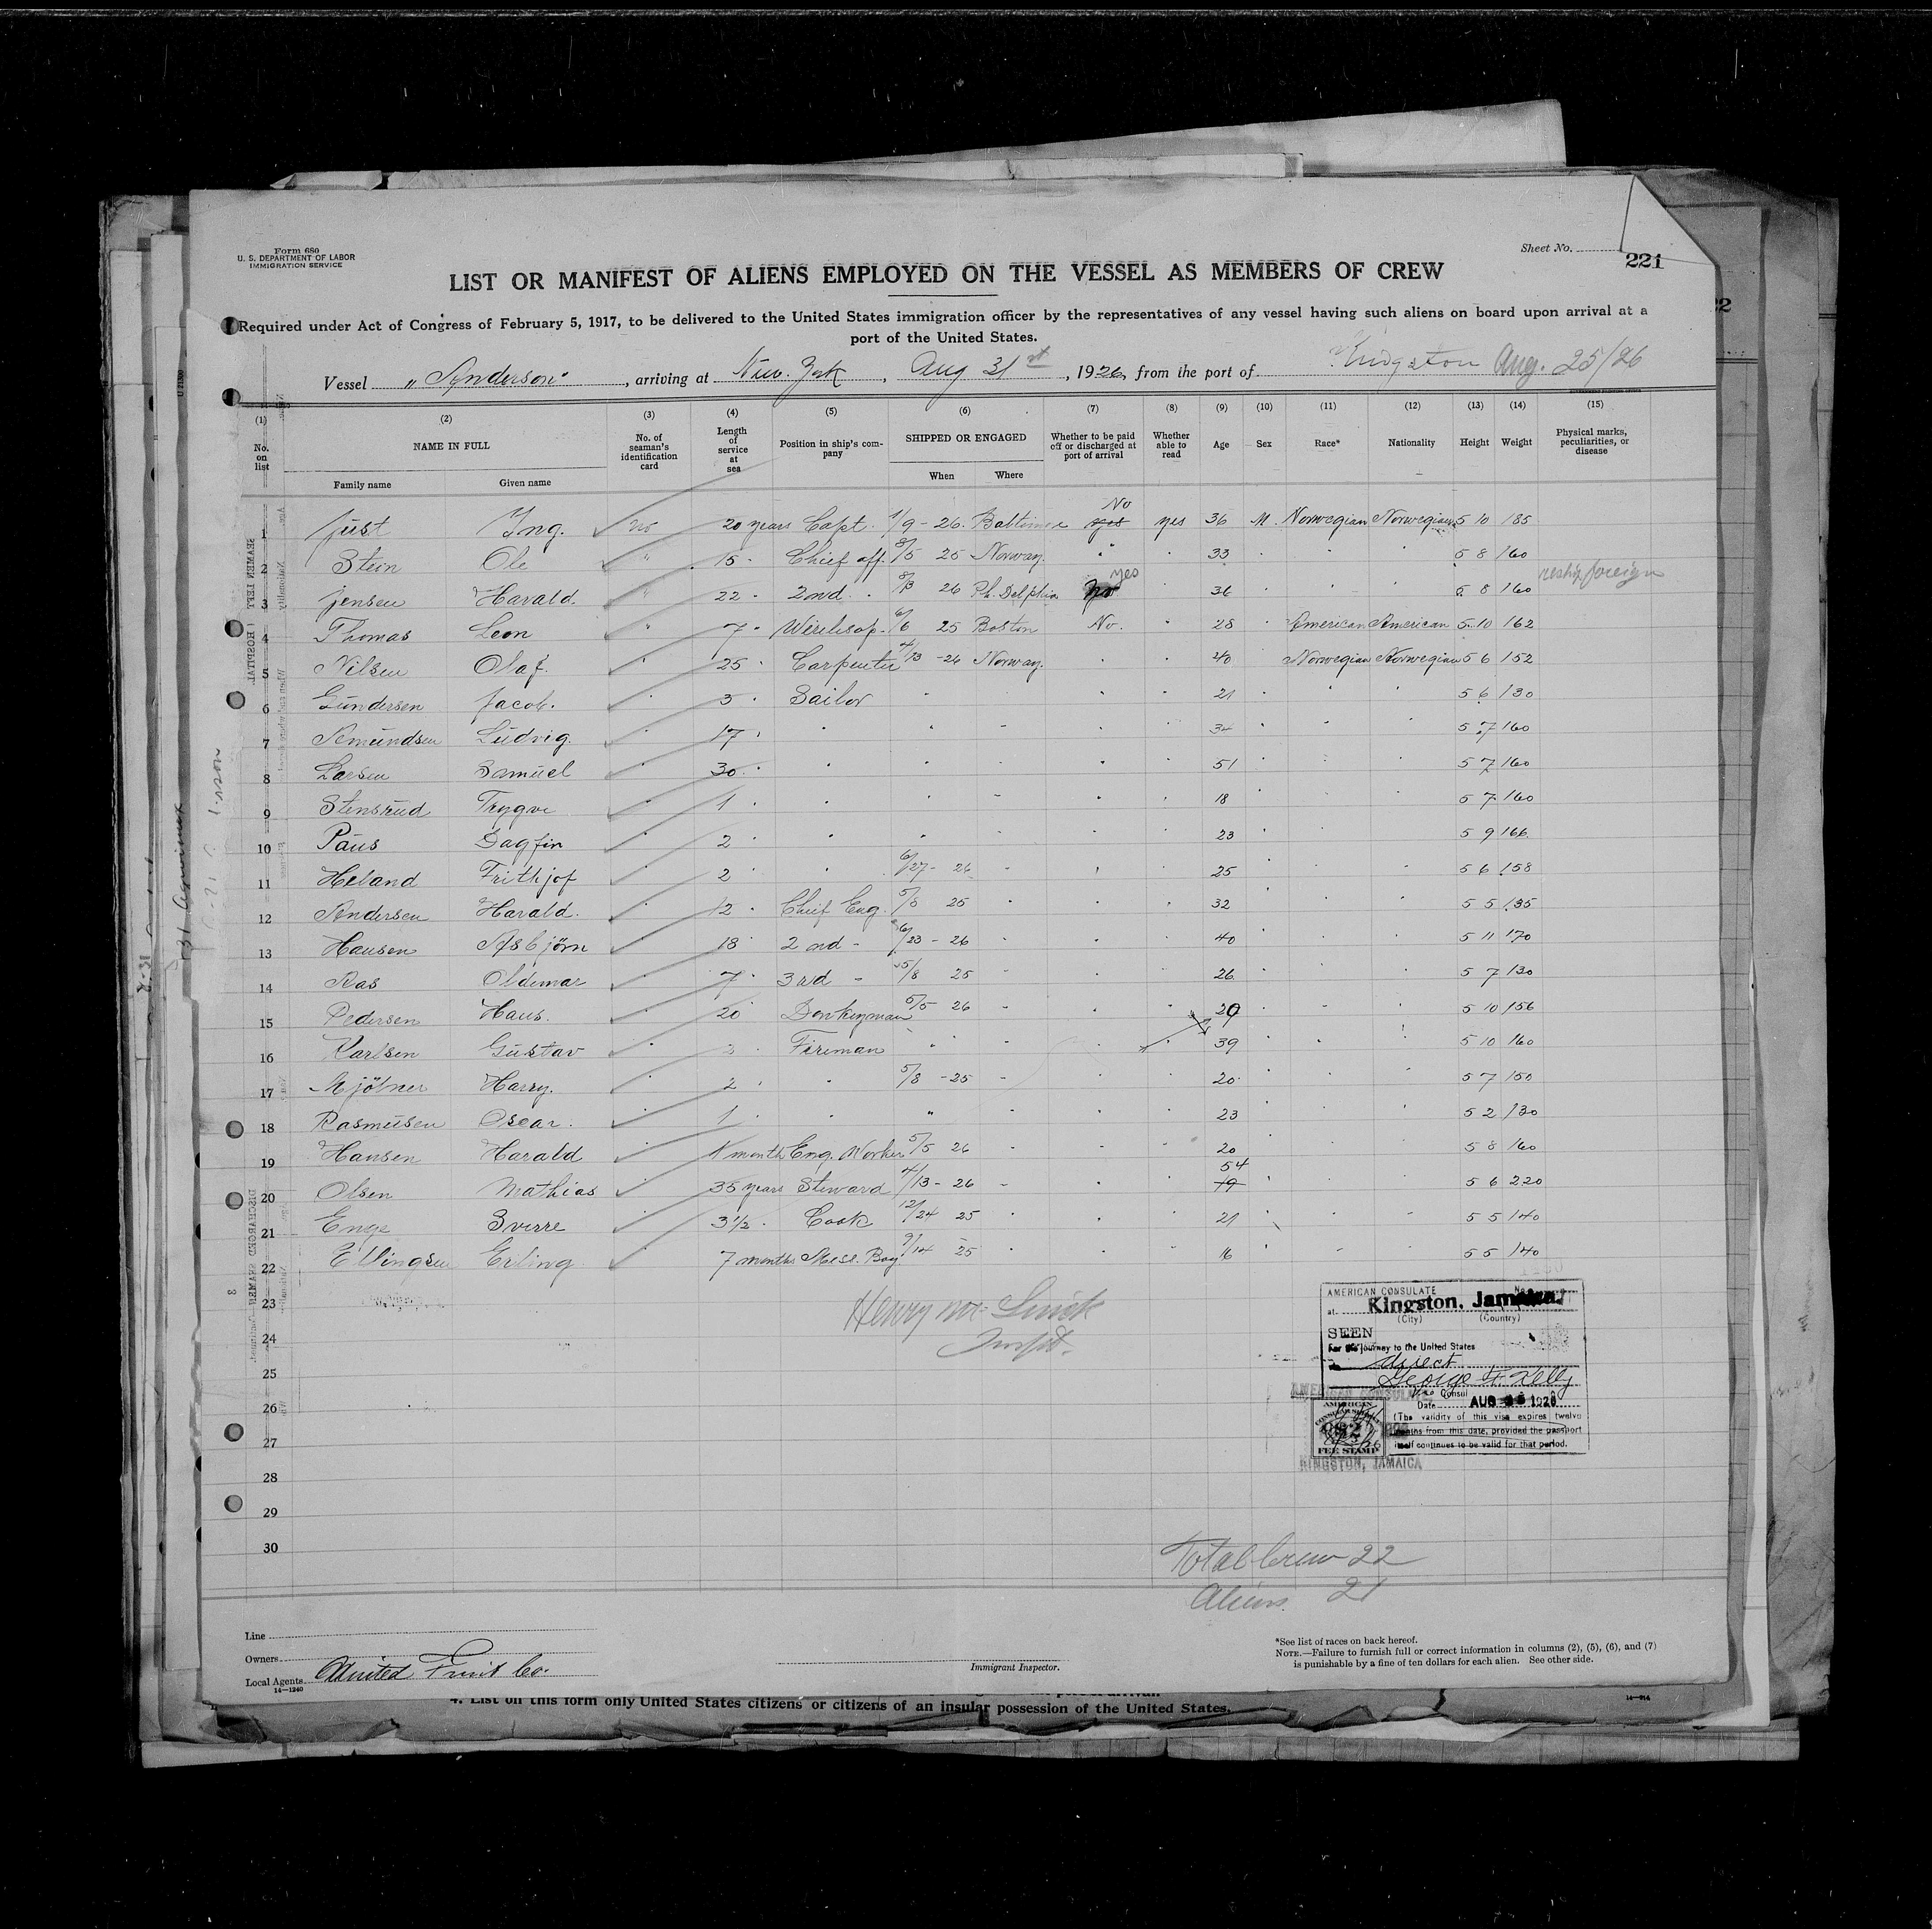 Form 680
U. S. DEPARTMENT OF LABOR
IMMIGRATION SERVICE
Sheet No.
221
LIST OR MANIFEST OF ALIENS EMPLOYED ON THE VESSEL AS MEMBERS OF CREW
Required under Act of Congress of February 5, 1917, to be delivered to the United States immigration officer by the representatives of any vessel having such aliens on board upon arrival at a
port of the United States.
Vessel "Anderson", arriving at New York, Aug 31st, 1926, from the port of Kingston Aug. 25/26
(1) (2) (3) (4) (5) (6) (7) (8) (9) (10) (11) (12) (13) (14) (15)
No. on list NAME IN FULL Family name Given name No. of seaman's identification card Length of service at sea Position in ship's company SHIPPED OR ENGAGED When Where Whether to be paid off or discharged at port of arrival Whether able to read Age Sex Race* Nationality Height Weight Physical marks, peculiarities, or disease
1 Just Ing. no 20 years Capt. 1/9-26. Baltimore yes No yes 36 M. Norwegian Norwegian 5 10 185
2 Stein Ole " 15 " Chief off. 8/5 25 Norway. " " 33 " " " 5 8 160
3 Jensen Harald. " 22 " 2nd " 26 Ph. Delphia no yes " 36 " " " 5 8 160 reship foreign
4 Thomas Leon " 7 " 6/6 25 Boston No. " 28 " American American 5 10 162
5 Nilsen Olaf. " 25 " Carpenter 4/13-26 Norway. " " 40 " Norwegian Norwegian 5 6 152
6 Gundersen Jacob. " 3 " Sailor " " " " 21 " " " 5 6 130
7 Amundsen Ludvig. " 17 " " " " " " 34 " " " 5 7 160
8 Larsen Samuel " 30 " " " " " " 51 " " " 5 7 160
9 Stensrud Trygve " 1 " " " " " " 18 " " " 5 7 160
10 Paus Dagfin " 2 " " " " " " 23 " " " 5 9 166
11 Heland Frithjof " 2 " " 6/27-26 " " " 25 " " " 5 6 158
12 Andersen Harald. " 12 " Chief Eng. 5/8 25 " " " 32 " " " 5 5 135
13 Hansen Asbjörn " 18 " 2nd " 6/23-26 " " " 40 " " " 5 11 170
14 Ras Oldemar " 7 " 3rd " 5/8 25 " " " 26 " " " 5 7 130
15 Pedersen Hans. " 20 Donkeyman 5/5 26 " " " 29 " " " 5 10 156
16 Karlsen Gustav " " Fireman " " " " 39 " " " 5 10 160
17 Mjölner Harry. " 2 " " 5/8-25 " " " 20 " " " 5 7 150
18 Rasmusen Oscar. " 1 " " " " " " 23 " " " 5 2 130
19 Hansen Harald " 1 month Eng. Worker 5/5 26 " " " 20 " " " 5 8 160
20 Olsen Mathias " 35 years Steward 4/13-26 " " " 19 54 " " " 5 6 220
21 Enge Sverre " 3½ " Cook 12/24 25 " " " 21 " " " 5 5 140
22 Ellingsen Erling " 7 months Mess. Boy. 9/14 25 " " " 16 " " " 5 5 140
23
24
25
26
27
28
29
30
Inspt.
AMERICAN CONSULATE No.
at Kingston, Jamaica.
(City) (Country)
SEEN
For the journey to the United States
direct
George F. Kelly
Vice Consul
Date AUG 25 1926
(The validity of this visa expires twelve
months from this date, provided the passport
itself continues to be valid for that period.
AMERICAN CONSULATE
AMERICAN
CONSULAR SERVICE
FEE STAMP
KINGSTON, JAMAICA
Total Crew 22
Aliens. 21
Line
Owners
Local Agents United Fruit Co.
14—1240
Immigrant Inspector.
*See list of races on back hereof.
NOTE.—Failure to furnish full or correct information in columns (2), (5), (6), and (7)
is punishable by a fine of ten dollars for each alien. See other side.
4. List on this form only United States citizens or citizens of an insular possession of the United States.